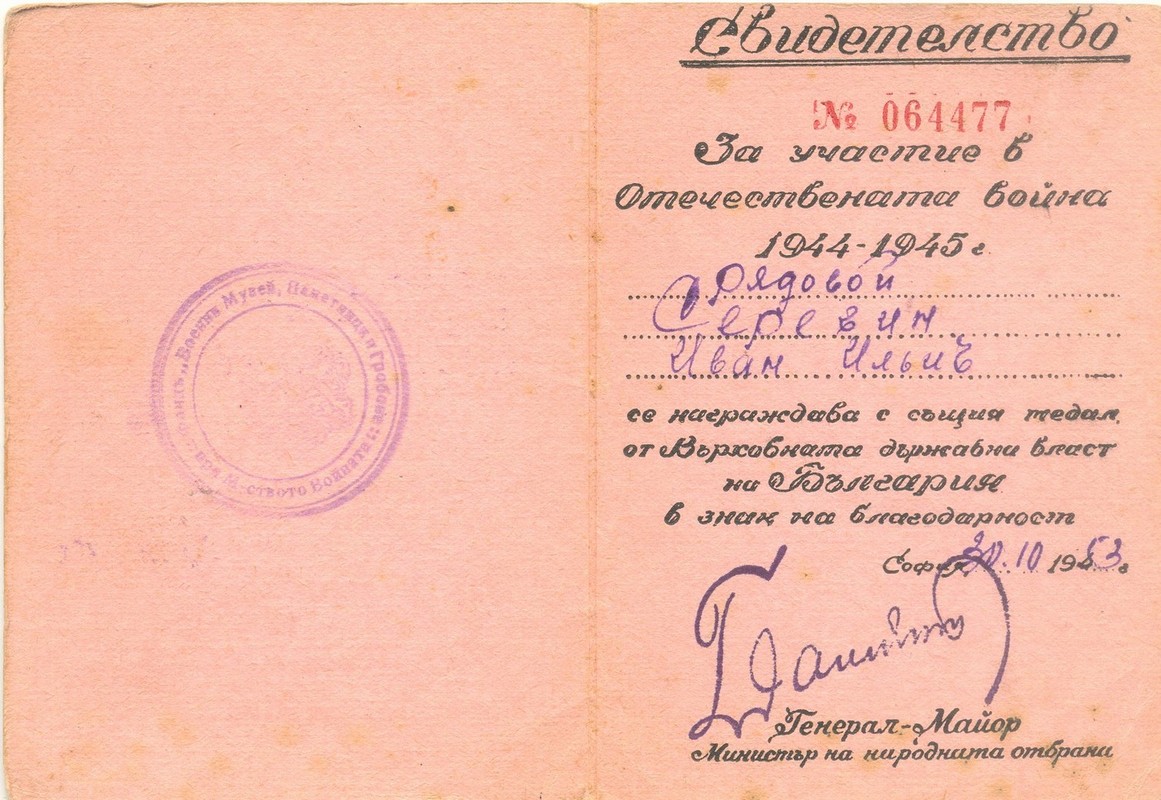 Свидетелство
№ 064477
За участие в
Отечествената война
1944-1945 г
Рядовой
Серевин
Иван Ильич
се награждава с същия медал
от Върховната държавна власт
на България
в знак на благодарност
София 30.10 1953 г
Генерал-Майор
Министър на народната отбрана
Военнъ Музей, Паметници и Гробове
при М-ството Войната